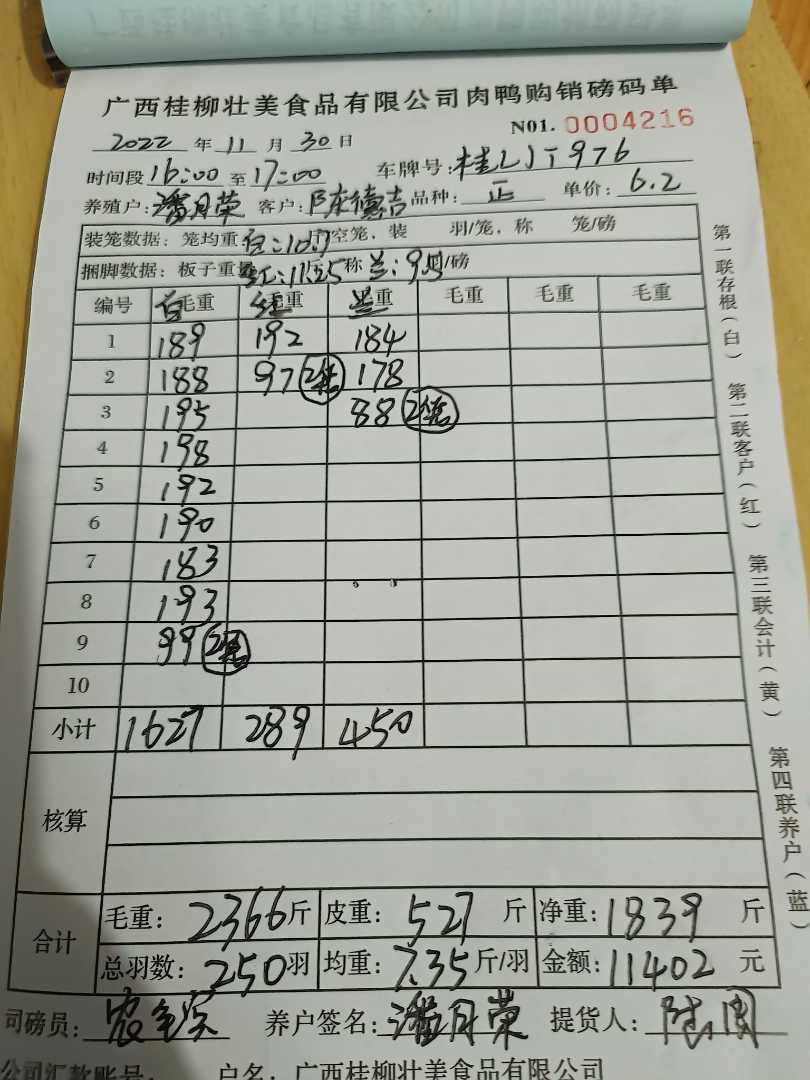 广西桂柳壮美食品有限公司肉鸭购销磅码单
2022 年 11 月 30 日 N01. 0004216
时间段 16:00 至 17:00 车牌号: 桂LJT976
养殖户: 潘月荣 客户: 陈德吉 品种: 正 单价: 6.2
装笼数据: 笼均重 白: 10.7 斤空笼, 装 羽/笼, 称 笼/磅
捆脚数据: 板子重量 红: 11.25 称 兰: /磅
编号 白毛重 红毛重 兰毛重 毛重 毛重 毛重
1 189 192 184
2 188 97 2笼 178
3 195 88 2笼
4 198
5 192
6 190
7 183
8 193
9 99 2笼
10
小计 1627 289 450
核算
合计 毛重: 2366 斤 皮重: 527 斤 净重: 1839 斤
总羽数: 250 羽 均重: 7.35 斤/羽 金额: 11402 元
司磅员: 养户签名: 潘月荣 提货人:
公司汇款账号: 户名: 广西桂柳壮美食品有限公司
第一联存根(白) 第二联客户(红) 第三联会计(黄) 第四联养户(蓝)